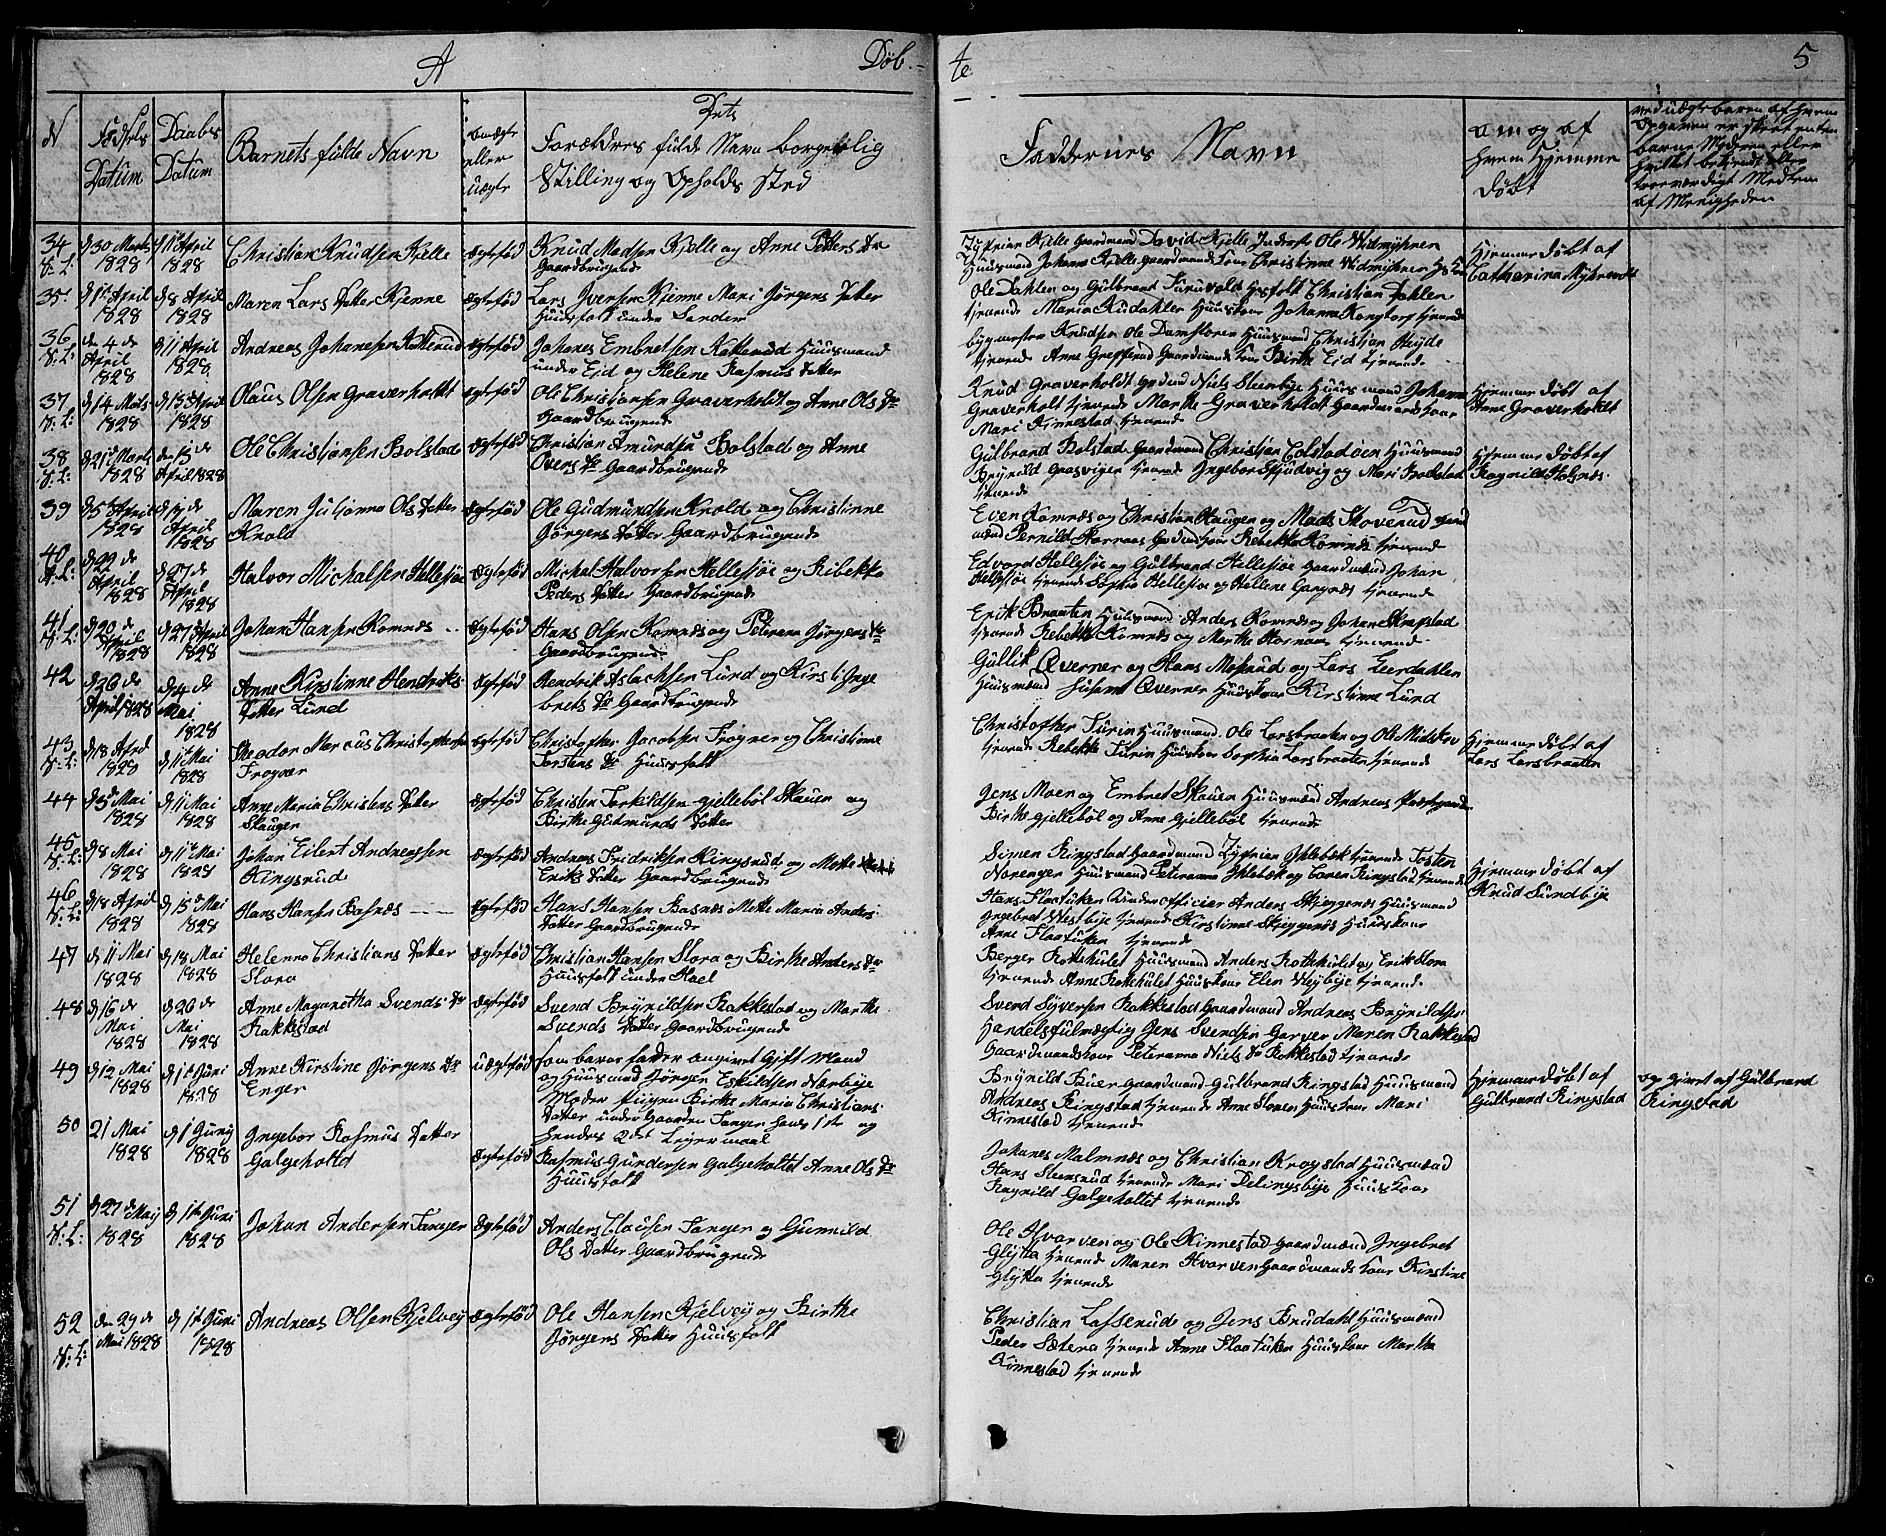 A Døb-
te 5
N
Fødsels Datum
Daabs Datum
Barnets fulde Navn
om ægte eller uægte
Dets Forældres fulde Navn borgerlig Stilling og Opholds Sted
Faddernes Navn
om og af hvem hjemme døbt
34 V:L:
d 30 Marts 1828
d 11 April 1828
Christian Knudsen Kjelle
ægtefød
Knud Madsen Kjelle og Anne Petters Dr
Gaardbrugende
Gaardmand David Kjelle Inderste Ole Widmyhren
Huusmand Johanne Kjelle Gaardmands Kone Christinne Widmyhren
Hjemmedøbt af
Catharina Myhrende
35
d 1te April 1828
d 8 April 1828
Maren Lars Datter Kjenne
ægtefød
Lars Iversen Kjenne Mari Jørgens Datter
Huusfolk under Sander
Ole Dahlen og Gulbrand Christian Dahlen
tjenende Maria Rudahlen Huuskone Johanne Kongtorp tjenende
36 V:L:
den 4 de April 1828
d 11 April 1828
Andreas Johanesen Katterud
ægtefød
Johanes Embretsen Katterud Huusmand
under Eid og Helene Rasmus Datter
Knudsen Ole Damstoren Huusmand Christian Heyde
tjenende Anne Gaardmands Kone Birthe Eid tjenende
37 V:L:
d 14 Mats 1828
d 13 April 1828
Olaus Olsen Graverholdt
ægtefød
Ole Christiansen Graverholdt og Anne Ols Dr
Gaardbrugende
Knud Graverholdt Niels Steenbye Huusmand Johanne
Graverholt tjenende Marthe Graverholdt Gaardmands Kone
Mari Kinnestad tjenende
Hjemmedøbt af
Anne Graverholdt
38 V:L:
d 21 Marts 1828
den 13 de April 1828
Ole Christiansen Bolstad
ægtefød
Christian Amundsen Bolstad og Anne
Overs Dr Gaardbrugende
Gulbrand Bolstad Gaardmand Christian Colstadøen Huusmand
Brynild Graasviger tjenende Ingebor Skjudvig og Mari Bolstad
tjenende
Hjemmedøbt af
Ragnild Holsnæs
39
d 5 April 1828
d 17 de April 1828
Maren Julianna Ols Datter
Knold
ægtefød
Ole Gudmundsen Knold og Christinne
Jørgens Datter Gaardbrugende
Even Komnæs og Christian Haugen og Mads Skoverud
Pernild Kornæs Rebekka Komnæs tjenende
40 V:L:
d 22 de April 1828
d 27 de April 1828
Halvor Michalsen Hellesjøe
ægtefød
Michal Halvorsen Hellesjøe og Ribekka
Peders Datter Gaardbrugende
Edvard Hellesjøe og Gulbrand Hellesjøe Gaardmænd Johan
Hellesjøe tjenende Sophie Hellesjøe og Hellene tjenende
41 V:L:
d 20 de April 1828
d 27 April 1828
Johan Hansen Komnæs
ægtefød
Hans Olsen Komnæs og Peterene Jørgens Dr
Gaardbrugende
Erik Braaten Huusmand Anders Komnæs og Johan
tjenende Rebekka Komnæs og Marthe tjenende
42
d 26 de April 1828
d 4 de Mai 1828
Anne Kirstinne Hendriks
Datter Lund
ægtefød
Hendrik Aslachsen Lund og Kirsti Inge
brets Dr Gaardbrugende
Gullik Øverner og Hans Mosrud og Lars Leerdahlen
Huusmænd Øverner Huuskone Kirstinne Lund
43 V:L:
d 18 April 1828
d 11te Mai 1828
Theodor Marcus Christophersen
Frogner
ægtefød
Christopher Jacobsen Frogner og Christinne
Torstens Dr Huusfolk
Christopher Turin Huusmand Ole Larsbraaten og Ole Midskov
tjenende Rebekka Turin Huuskone Sophia Larsbraaten tjenende
Hjemmedøbt af
Lars Larsbraaten
44
d 5 Mai 1828
d 11 Mai 1828
Anne Maria Christens Datter
Skauger
ægtefød
Christen Torkildsen Gjellebøl Skauen og
Birthe Gudmunds Datter
Jens Moen og Embret Skauen Huusmænd Andreas
Birthe Gjellebøl og Anne Gjellebøl tjenende
45 V:L:
d 8 Mai 1828
d 11te Mai 1828
Johan Eilert Andreassen
Kingsrud
ægtefød
Andreas Fridriksen Kingsrud og Mette
Eriks Datter Gaardbrugende
Simen Ringstad Gaardmand Zyprian Ihlebæk tjenende Tosten
Norenger Huusmand Peteranna Ihlebæk og Karen Ringstad tjenende
Hjemmedøbt af
Knud Sundbye
46 V:L:
d 18 April 1828
d 15 Mai 1828
Hans Hansen Basnæs
ægtefød
Hans Hansen Basnæs Mette Maria Anders
Datter Gaardbrugende
Hans Flaatuken Underofficier Anders Skjeggenæs Huusmand
Ingebret Westbye tjenende Kirstinne Skjeggenæs Huuskone
Anne Flaatuken tjenende
47
d 11 Mai 1828
d 18 Mai 1828
Helenne Christians Datter
Slora
ægtefød
Christian Hansen Slora og Birthe Anders Dr
Huusfolk under Hoel
Berger Kottehulet Huusmand Anders Kottehulet og Erik Slora
tjenende Anne Kottehulet Huuskone Elen Heybye tjenende
48
d 16 de Mai 1828
d 26 de Mai 1828
Anne Magaretha Svends Dr
Rakkestad
ægtefød
Svend Brynildsen Rakkestad og Marthe
Svends Datter Gaardbrugende
Svend Syversen Rakkestad Gaardmand Andreas Brynildsen
Handelsfulmægtig Jens Svendsen Garver Maren Rakkestad
Gaardmandskone Peteranna Niels Dr Rakkestad tjenende
49
d 12 Mai 1828
d 1te Juni 1828
Anne Kirstine Jørgens Dr
Enger
uægtefød
som barnefader angivet Gift Mand
og Huusmand Jørgen Eskildsen Nærbye
Moder Pigen Birthe Maria Christians
Datter under Gaarden Tanger hans 1ste og
hendes 2det Leyermaal
Brynild Gaardmand Gulbrand Ringstad Huusmand
Andreas Ringstad tjenende Anne Huuskone Mari
Kinnestad tjenende
Hjemmedøbt af
Gulbrand Ringstad
opgivet af Gulbrand
Ringstad
50
21 Mai 1828
d 1 Juny 1828
Ingebor Rasmus Datter
Galgeholtd
ægtefød
Rasmus Gundersen Galgeholtet Anne Ols Dr
Huusfolk
Johanes Malmnæs og Christian Krogstad Huusmænd
Hans Steensrud tjenende Mari Delingsbye Huuskone
Ragnild Galgeholtet tjenende
51 V:L:
d 27 de May 1828
d 1te Juni 1828
Johan Andersen Tanger
ægtefød
Anders Clausen Tanger og Gunnild
Ols Datter Gaardbrugende
Ole Hvarven og Ole Kinnestad Gaardmænd Ingebret
Glytta tjenende Maren Hvarven Gaardmands Kone Kirstine
Glytta tjenende
52 V:L:
den 29 de Mai 1828
d 1te Juni 1828
Andreas Olsen Kjelvey
ægtefød
Ole Hansen Kjelvey og Birthe
Jørgens Datter Huusfolk
Christian Lasserude og Jens Brudahl Huusmænd
Peder Sætera tjenende Anne Flaatuken Huuskone Martha
Kinnestad tjenende